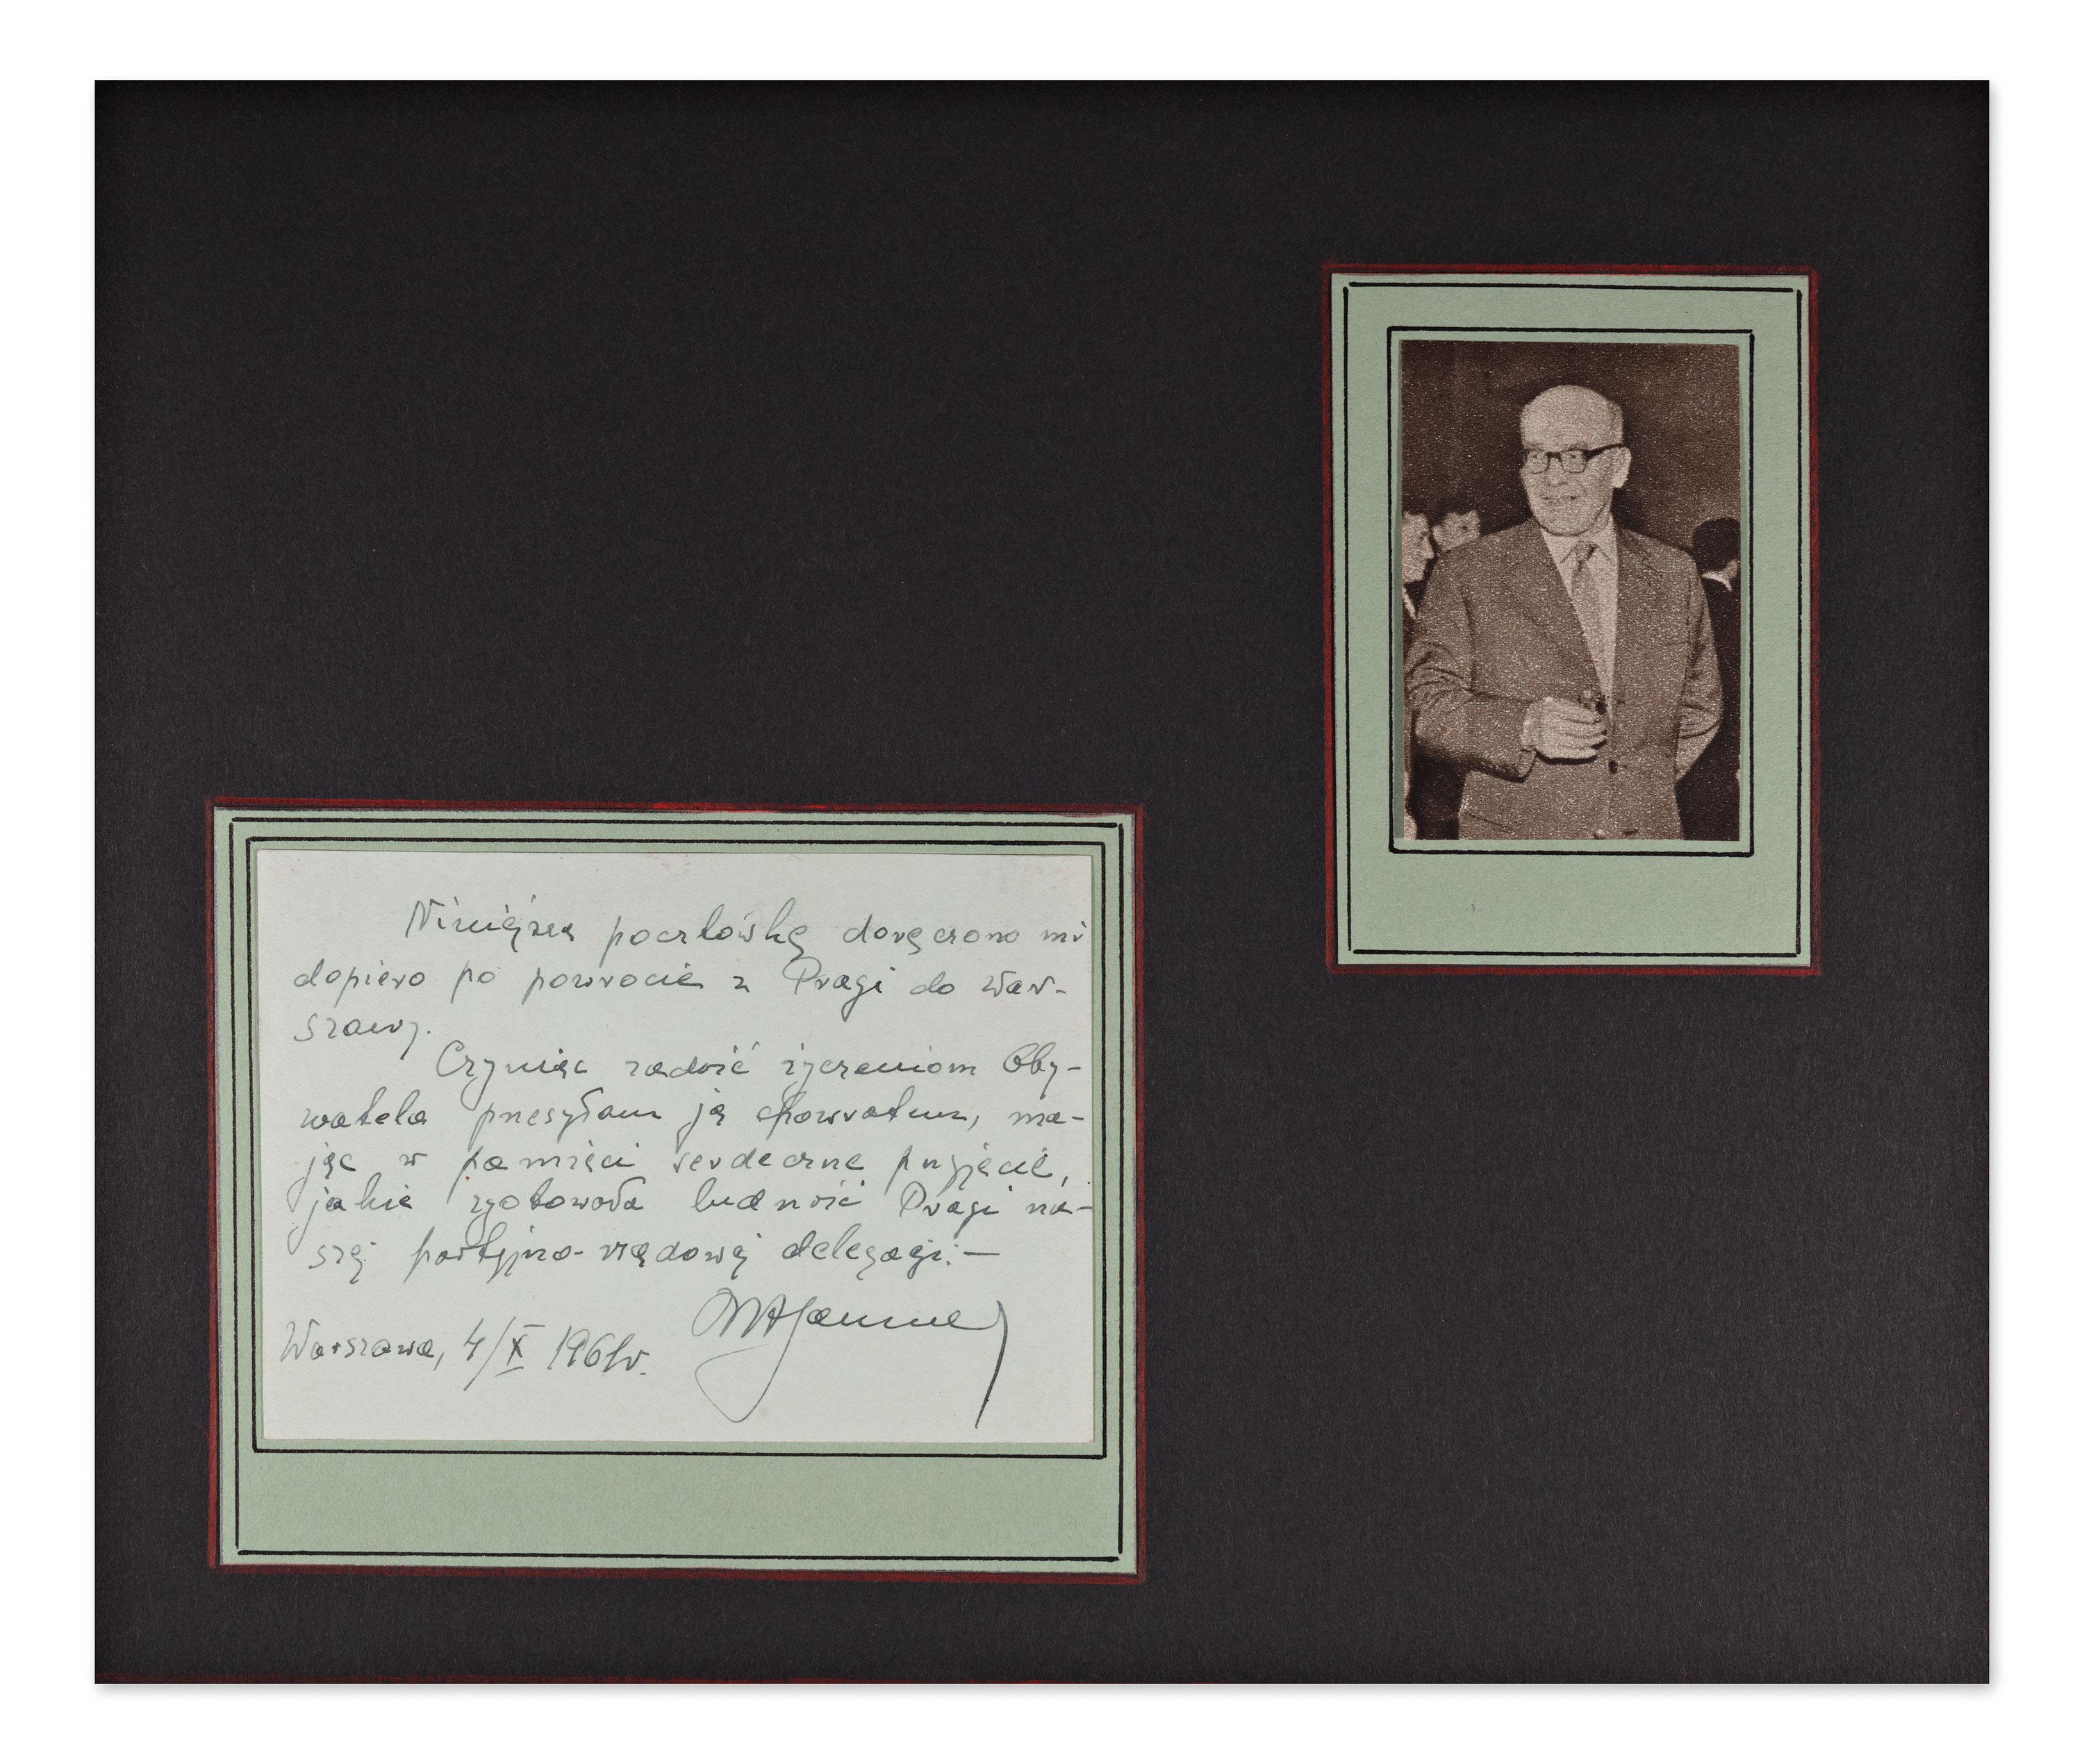 Niniejszą pocztówkę doręczono mi
dopiero po powrocie z Pragi do War-
szawy.
Czyniąc zadość życzeniom Oby-
watela przesyłam ją spowrotem, ma-
jąc w pamięci serdeczne przyjęcie,
jakie zgotowała ludność Pragi na-
szej partyjno-rządowej delegacji.—
Warszawa, 4/X 1961r.